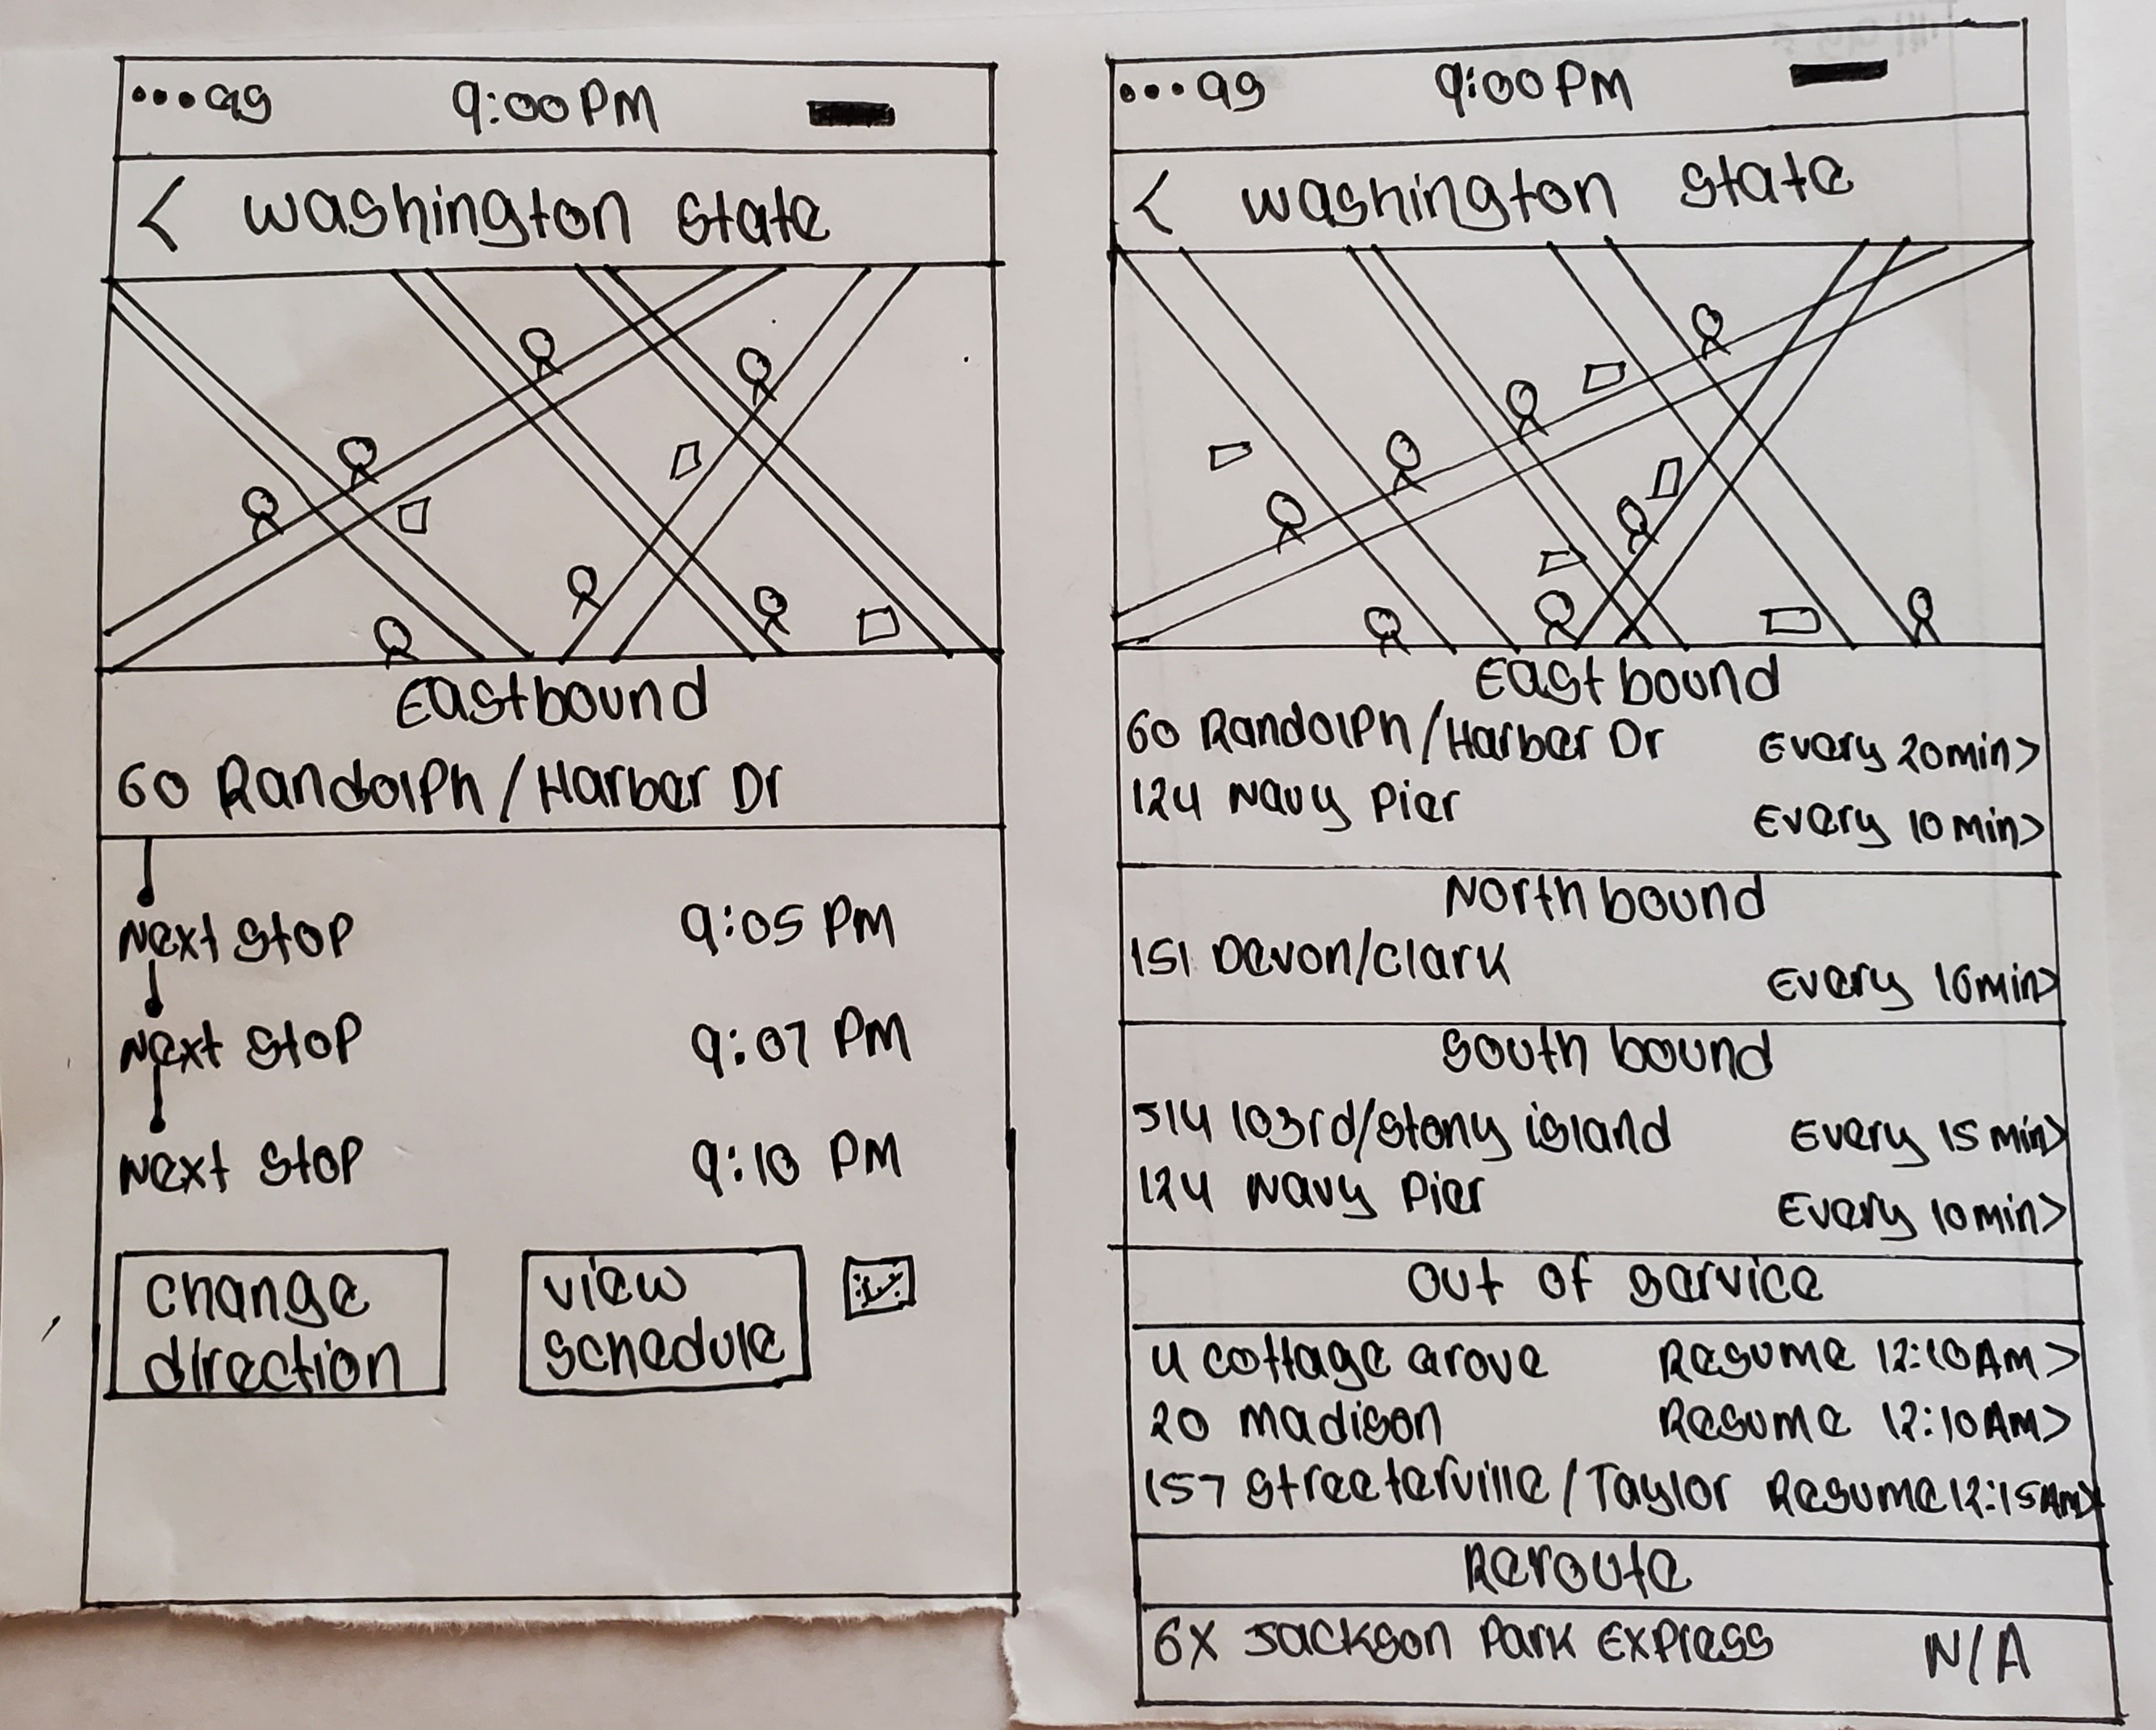 ...99
9:00 PM
< Washington State
Eastbound
60 Randolph/Harber Dr
Next Stop 9:05 PM
Next Stop 9:07 PM
Next Stop 9:10 PM
Change direction
View schedule
...99
9:00 PM
< Washington State
East bound
60 Randolph/Harber Dr Every 20min>
124 Navy Pier Every 10 min>
North bound
151 Devon/Clark Every 10min>
South bound
J14 103rd/Stony island Every 15 min>
124 Navy Pier Every 10min>
Out of Service
4 Cottage Grove Resume 12:10AM>
20 Madison Resume 12:10AM>
157 Streeterville/Taylor Resume 12:15AM>
Reroute
6X Jackson Park Express N/A